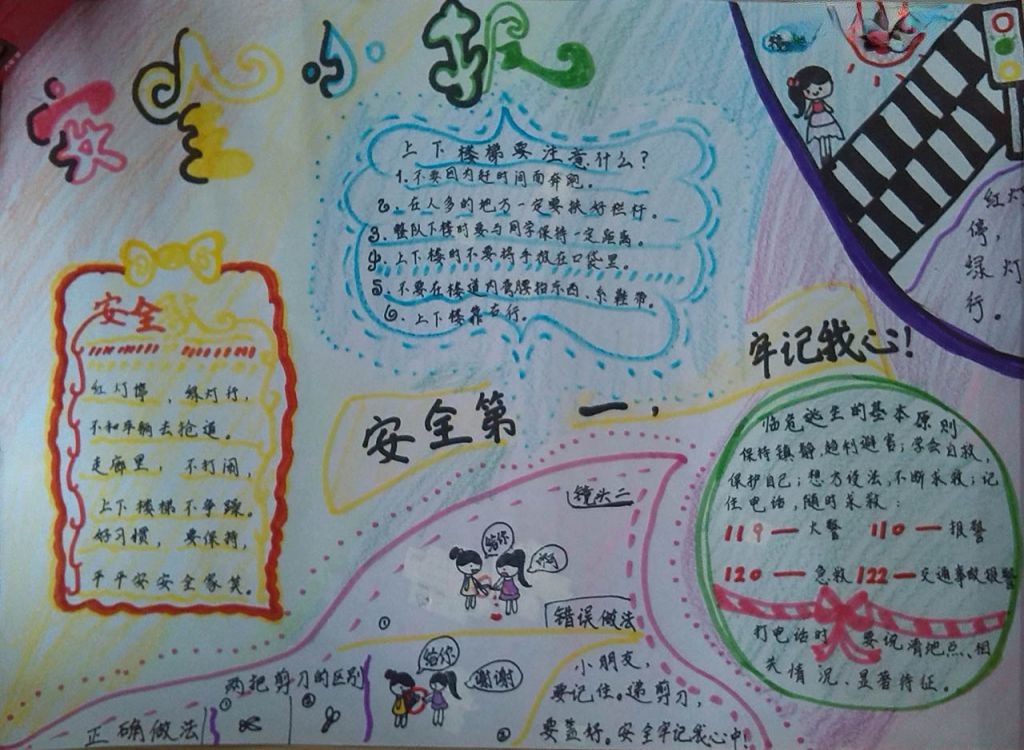 安全小报
上下楼梯要注意什么?
1.不要因为赶时间而奔跑。
2.在人多的地方一定要扶好栏杆。
3.整队下楼时要与同学保持一定距离。
4.上下楼时不要将手放在口袋里。
5.不要在楼道内弯腰拾东西、系鞋带。
6.上下楼靠右行。
红灯
停,
绿灯
行。
安全
红灯停,绿灯行,
不和车辆去抢道。
走廊里,不打闹,
上下楼梯不争躁。
好习惯,要保持,
平平安安全家笑。
安全第一,
牢记我心!
临危逃生的基本原则
保持镇静,趋利避害;学会自救,
保护自己;想方设法,不断求救;记
住电话,随时求救:
119—火警 110—报警
120—急救 122—交通事故报警
打电话时要说清地点、相
关情况、显著特征。
镜头二
给你
①
错误做法
给你
谢谢
②
两把剪刀的区别
① ②
正确做法
小朋友,
要记住。递剪刀,
要盖好。安全牢记我心中!